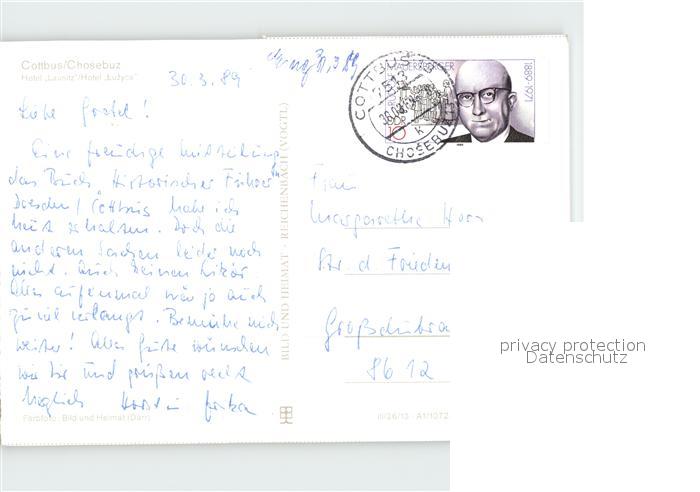 Cottbus/Chosebuz
Hotel „Lausitz“/Hotel „Łužyca“
30.3.89
Liebe Gretel!
Eine freudige Mitteilung
das Buch „Historischer Führer“
Dresden/Cottbus habe ich
heute erhalten. Doch die
anderen Sachen leider noch
nicht. Auch keinen Likör.
Alles auf einmal wär ja auch
zu viel verlangt. Bemühe mich
weiter! Alles Gute wünschen
wir Dir und grüßen recht
herzlich
Farbfoto: Bild und Heimat (Darr)
BILD UND HEIMAT · REICHENBACH (VOGTL)
31.3.89
COTTBUS
7513
CHOŚEBUZ
k
10
1889-1971
Frau
Margarethe
Str. d Frieden
Großdubra
8612
III/26/13 · A1/1072
privacy protection
Datenschutz